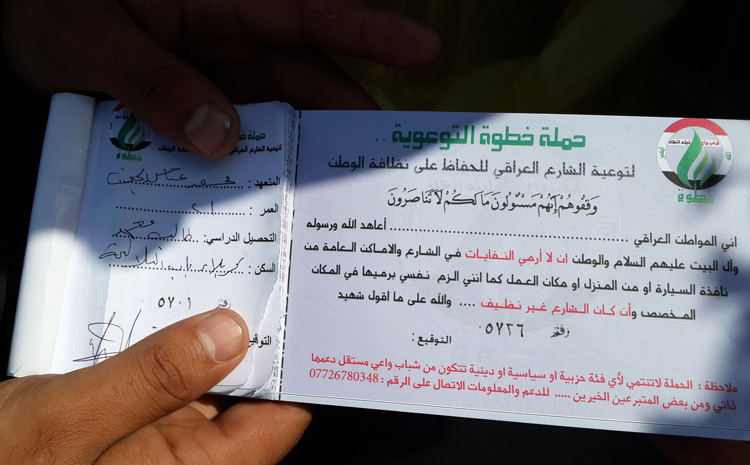 حملة خطوة التوعوية ..
لتوعية الشارع العراقي للحفاظ على نظافة الوطن
وَقِفُوهُمْ إِنَّهُمْ مَسْئُولُونَ مَا لَكُمْ لَا تَنَاصَرُونَ
اني المواطن العراقي ........................ أعاهد الله ورسوله
وآل البيت عليهم السلام والوطن ان لا أرمي النفايات في الشارع والاماكن العامة من
نافذة السيارة او من المنزل او مكان العمل كما انني الزم نفسي برميها في المكان
المخصص وأن كان الشارع غير نظيف .... والله على ما اقول شهيد
رقم ٠٥٧٢٦
التوقيع :
ملاحظة : الحملة لاتنتمي لأي فئة حزبية او سياسية او دينية تتكون من شباب واعي مستقل دعمها
ذاتي ومن بعض المتبرعين الخيرين ..... للدعم والمعلومات الاتصال على الرقم : 07726780348
خطوة
حملة خطوة التوعوية
لتوعية الشارع العراقي
نظافة الوطن
خطوة
المتعهد :
العمر :
التحصيل الدراسي :
السكن : كربلاء
رقم ٠٥٧٠١
التوقيع